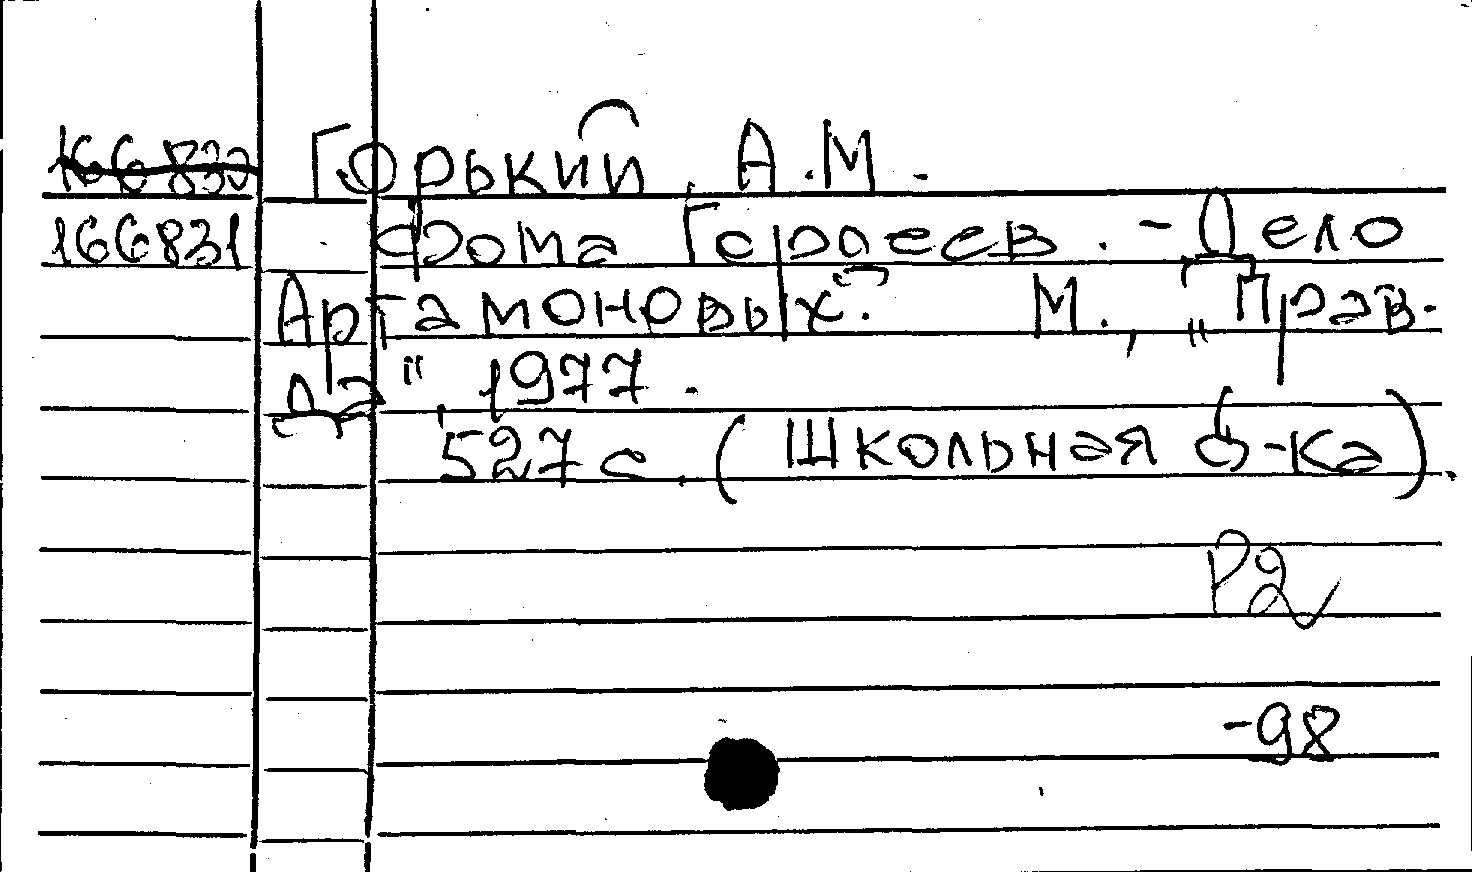 166832 Горький, А.М.
166831 Фома Гордеев. - Дело
Артамоновых. М., "Прав-
да", 1977.
527 с. (Школьная б-ка).
Р2
-98